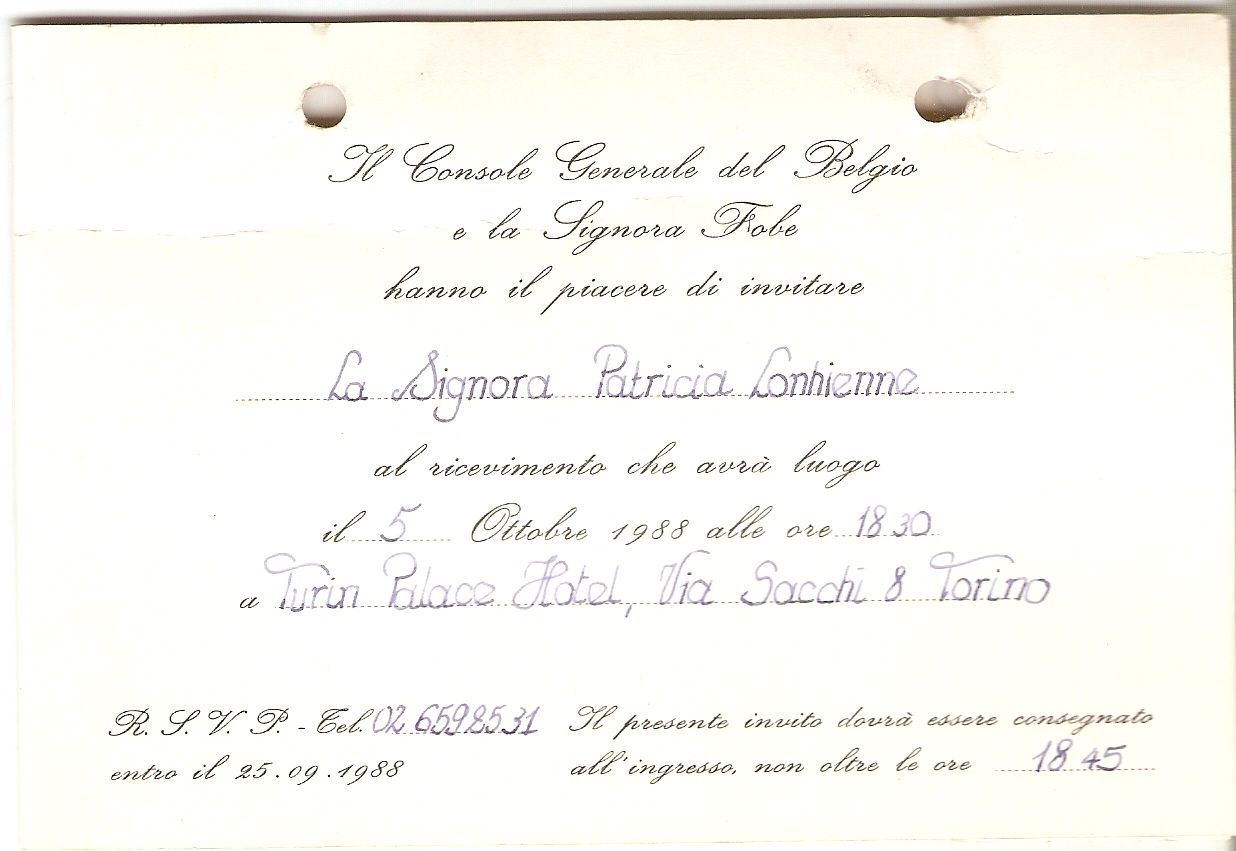 Il Console Generale del Belgio
e la Signora Fobe
hanno il piacere di invitare
La Signora Patricia Lonhienne
al ricevimento che avrà luogo
il 5 Ottobre 1988 alle ore 18 30
a Turin Palace Hotel, Via Sacchi 8 Torino
R. S. V. P. - Tel. 02 6598531
entro il 25.09.1988
Il presente invito dovrà essere consegnato
all'ingresso, non oltre le ore 18 45